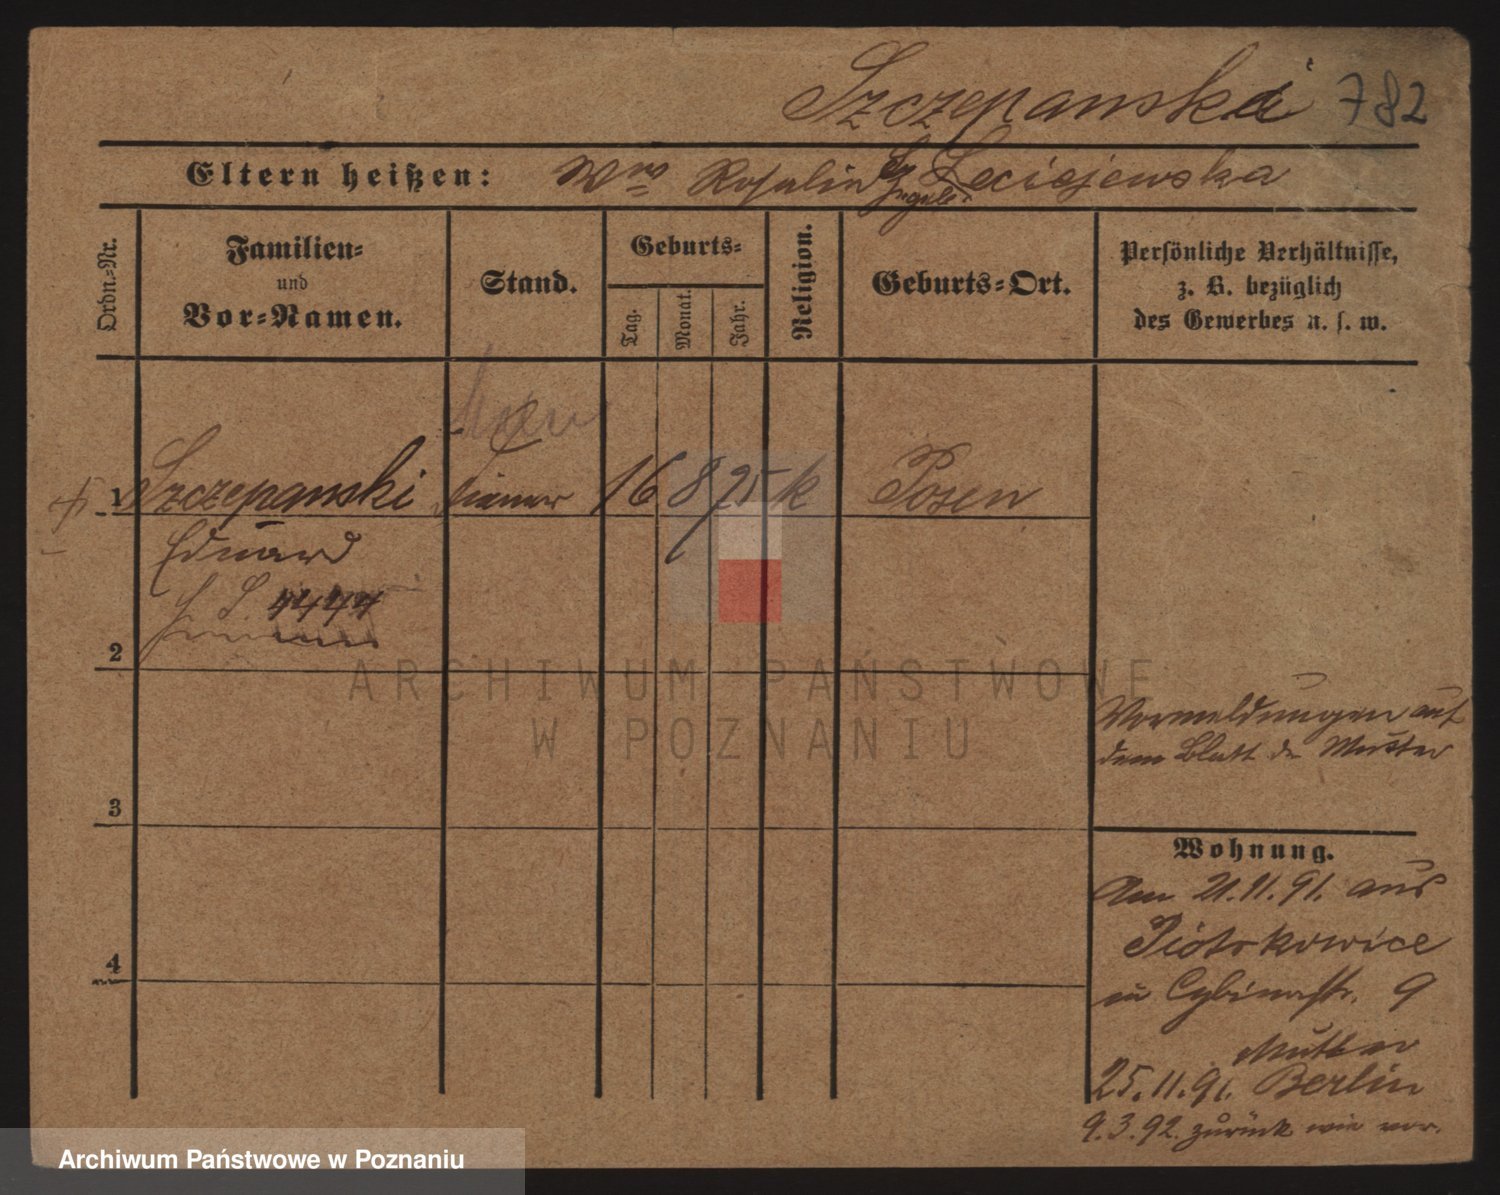 Szczepanski 782
Eltern heißen: Wwe Rosalie Sz Leciejewska
Ordn.-Nr.
Familien-
und
Vor-Namen.
Stand.
Geburts-
Tag.
Monat.
Jahr.
Religion.
Geburts-Ort.
Persönliche Verhältnisse,
z. B. bezüglich
des Gewerbes u. s. w.
1 Szczepanski Diener 16 8 75 k Posen
Eduard
2
3
4
Vormeldungen auf
dem Blatt der Mutter
Wohnung.
Am 21.11.91. aus
Piotrkowice
zu Cybinastr. 9
Mutter
25.11.91. Berlin
9.3.92. zurück wie vor.
ARCHIWUM PAŃSTWOWE
W POZNANIU
Archiwum Państwowe w Poznaniu